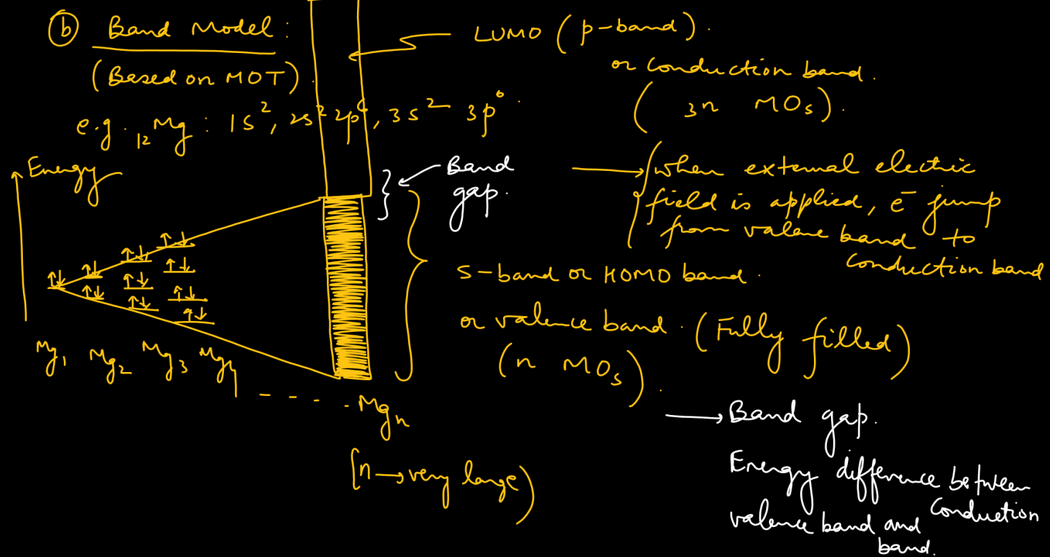 ⓑ Band Model :
(Based on MOT)
e.g. ₁₂Mg : 1s², 2s² 2p⁶, 3s² 3p⁰.
LUMO (p-band).
or conduction band.
(3n MOs).
Energy
Band
gap.
when external electric
field is applied, e⁻ jump
from valene band to
conduction band
s-band or HOMO band.
or valence band. (Fully filled)
(n MOs).
Mg₁ Mg₂ Mg₃ Mg₄ - - - - . Mgₙ
[n→very large)
→ Band gap.
Energy difference between
valence band and conduction
band.